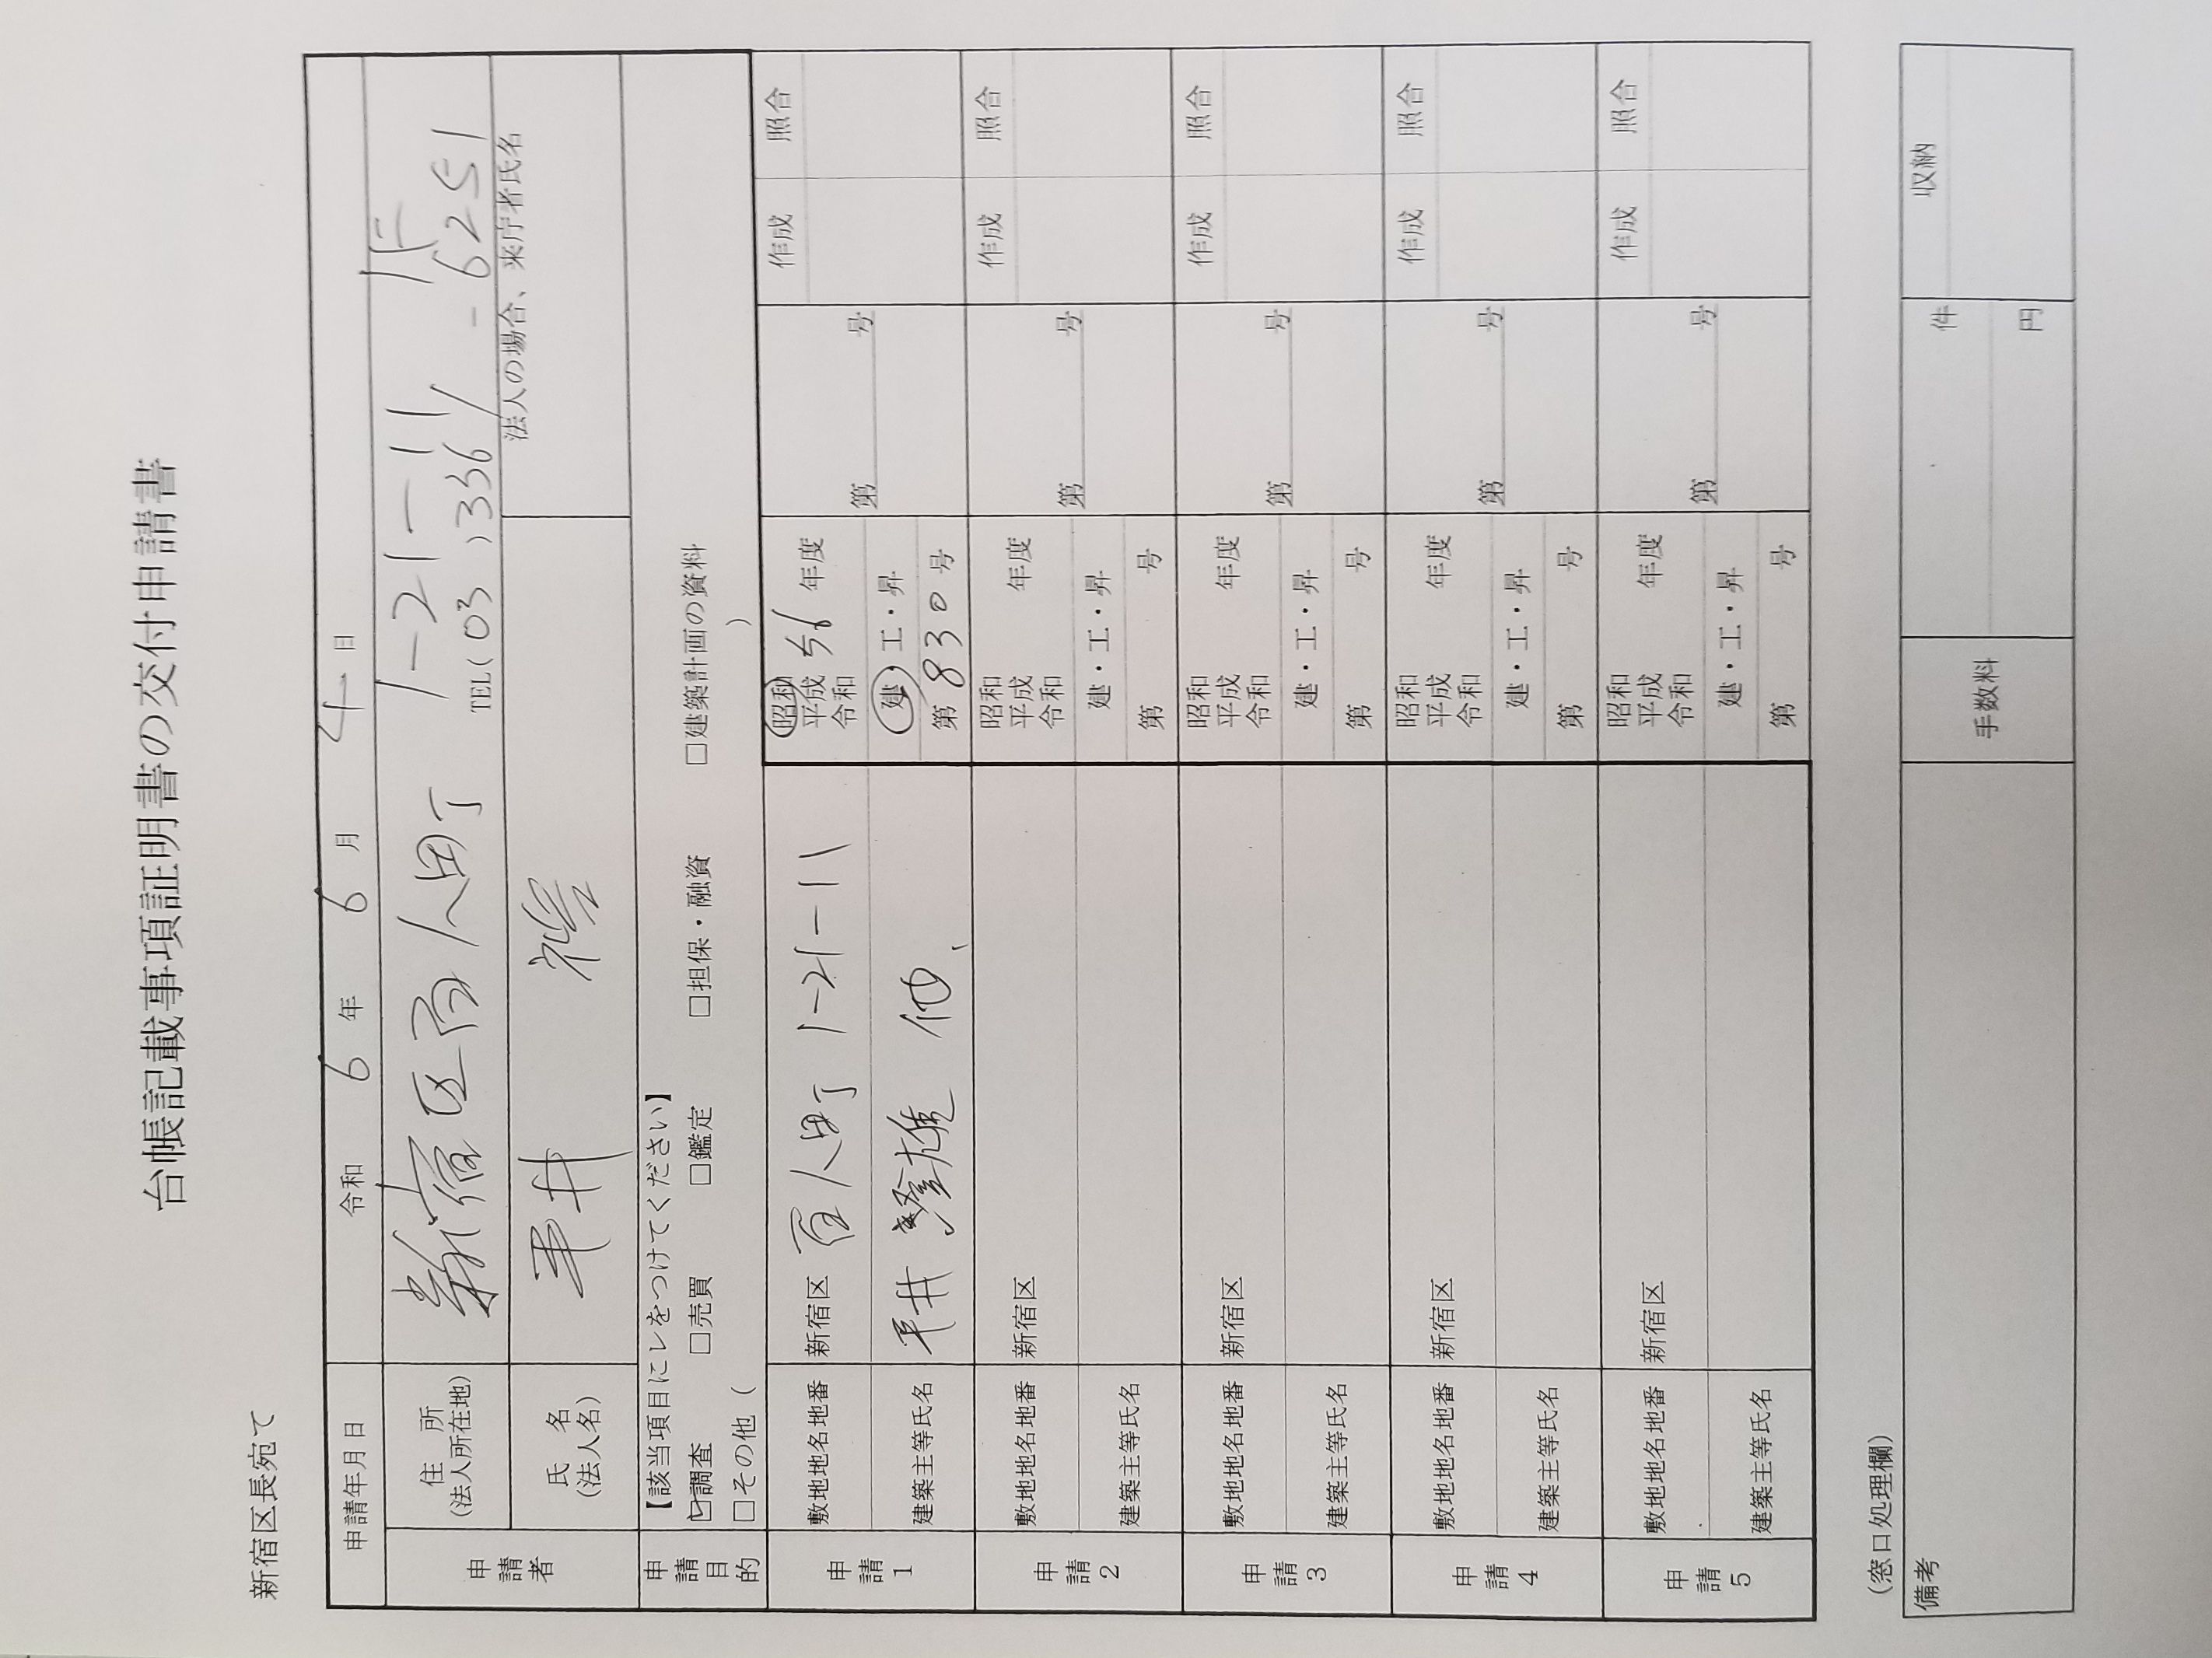 台帳記載事項証明書の交付申請書
新宿区長宛て
申請年月日 令和 6 年 6 月 4 日
申請者
住所 (法人所在地) 新宿区百人町 1-21-11 1F
TEL (03) 3361-6251
氏名 (法人名) 平井
法人の場合、来庁者氏名
申請目的
【該当項目にレをつけてください】
☑調査 □売買 □鑑定 □担保・融資 □建築計画の資料
□その他 ( )
申請1
敷地地名地番 新宿区 百人町 1-21-11
建築主等氏名 平井 澄雄 他、
昭和 平成 令和 56 年度
建・工・昇
第 830 号
第 号
作成 照合
申請2
敷地地名地番 新宿区
建築主等氏名
昭和 平成 令和 年度
建・工・昇
第 号
第 号
作成 照合
申請3
敷地地名地番 新宿区
建築主等氏名
昭和 平成 令和 年度
建・工・昇
第 号
第 号
作成 照合
申請4
敷地地名地番 新宿区
建築主等氏名
昭和 平成 令和 年度
建・工・昇
第 号
第 号
作成 照合
申請5
敷地地名地番 新宿区
建築主等氏名
昭和 平成 令和 年度
建・工・昇
第 号
第 号
作成 照合
(窓口処理欄)
備考
手数料
件
円
収納